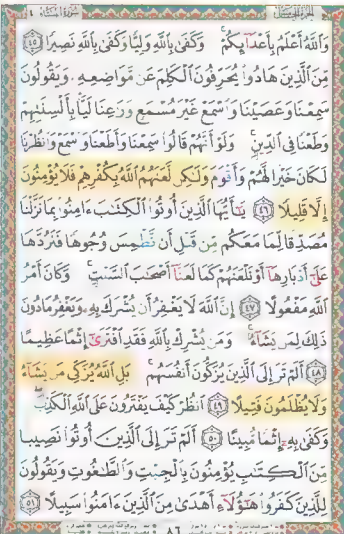 الجزء الخامس سورة النساء ٤
وَاللَّهُ أَعْلَمُ بِأَعْدَائِكُمْ ۚ وَكَفَىٰ بِاللَّهِ وَلِيًّا وَكَفَىٰ بِاللَّهِ نَصِيرًا ٤٥
مِّنَ الَّذِينَ هَادُوا يُحَرِّفُونَ الْكَلِمَ عَن مَّوَاضِعِهِ وَيَقُولُونَ
سَمِعْنَا وَعَصَيْنَا وَاسْمَعْ غَيْرَ مُسْمَعٍ وَرَاعِنَا لَيًّا بِأَلْسِنَتِهِمْ
وَطَعْنًا فِي الدِّينِ ۚ وَلَوْ أَنَّهُمْ قَالُوا سَمِعْنَا وَأَطَعْنَا وَاسْمَعْ وَانظُرْنَا
لَكَانَ خَيْرًا لَّهُمْ وَأَقْوَمَ وَلَٰكِن لَّعَنَهُمُ اللَّهُ بِكُفْرِهِمْ فَلَا يُؤْمِنُونَ
إِلَّا قَلِيلًا ٤٦ يَا أَيُّهَا الَّذِينَ أُوتُوا الْكِتَابَ آمِنُوا بِمَا نَزَّلْنَا
مُصَدِّقًا لِّمَا مَعَكُم مِّن قَبْلِ أَن نَّطْمِسَ وُجُوهًا فَنَرُدَّهَا
عَلَىٰ أَدْبَارِهَا أَوْ نَلْعَنَهُمْ كَمَا لَعَنَّا أَصْحَابَ السَّبْتِ ۚ وَكَانَ أَمْرُ
اللَّهِ مَفْعُولًا ٤٧ إِنَّ اللَّهَ لَا يَغْفِرُ أَن يُشْرَكَ بِهِ وَيَغْفِرُ مَا دُونَ
ذَٰلِكَ لِمَن يَشَاءُ ۚ وَمَن يُشْرِكْ بِاللَّهِ فَقَدِ افْتَرَىٰ إِثْمًا عَظِيمًا
٤٨ أَلَمْ تَرَ إِلَى الَّذِينَ يُزَكُّونَ أَنفُسَهُم ۚ بَلِ اللَّهُ يُزَكِّي مَن يَشَاءُ
وَلَا يُظْلَمُونَ فَتِيلًا ٤٩ انظُرْ كَيْفَ يَفْتَرُونَ عَلَى اللَّهِ الْكَذِبَ ۖ
وَكَفَىٰ بِهِ إِثْمًا مُّبِينًا ٥٠ أَلَمْ تَرَ إِلَى الَّذِينَ أُوتُوا نَصِيبًا
مِّنَ الْكِتَابِ يُؤْمِنُونَ بِالْجِبْتِ وَالطَّاغُوتِ وَيَقُولُونَ
لِلَّذِينَ كَفَرُوا هَٰؤُلَاءِ أَهْدَىٰ مِنَ الَّذِينَ آمَنُوا سَبِيلًا ٥١
٨٦